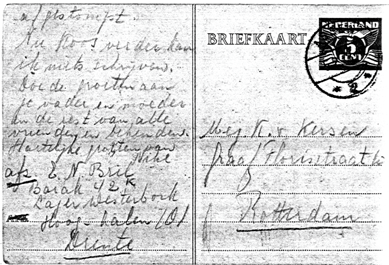 afgestompt.
Nu Koos verder kan
ik niets schrijven.
Doe de groeten aan
je vader en moeder
en de rest van alle
vrienden en bekenden.
Hartelijke groeten van
afz. E. N. Bril
Barak 42
Lager Westerbork
Hoog-halen (O)
Drente
BRIEFKAART
NEDERLAND
5
CENT
Mej K. v. Kersen
Graaf Florisstraat
Rotterdam